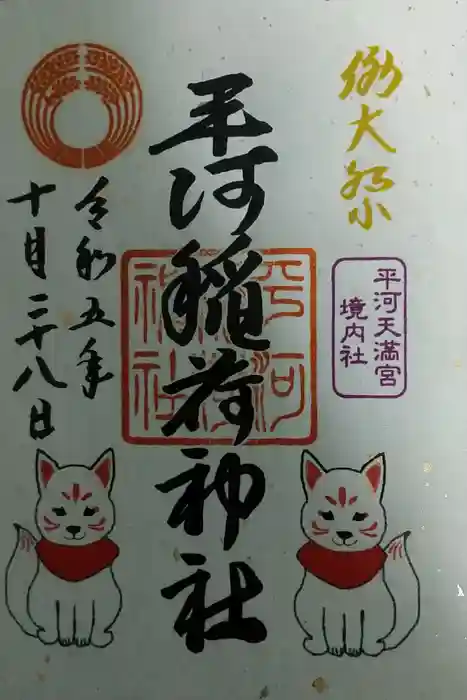 例大祭
平河天満宮
境内社
平河稲荷神社
平河
稲荷
神社
令和五年
十月二十八日